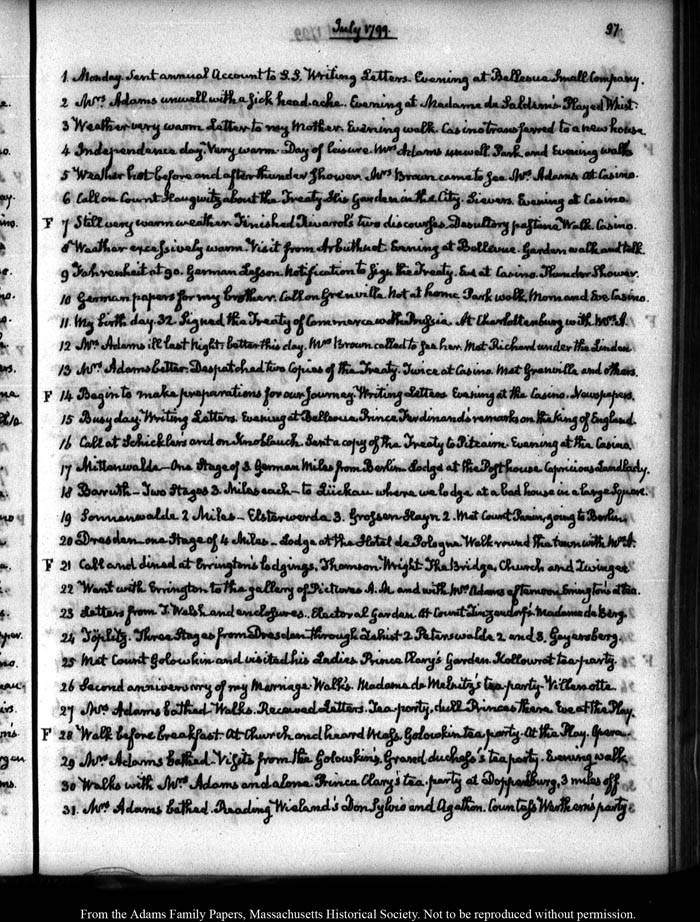 July 1799.
37.
1 Monday. Sent annual Account to S.S. Writing Letters. Evening at Bellevue Small Company.
2 Mrs Adams unwell with a sick head-ache. Evening at Madame de Saldern's. Played Whist.
3 Weather very warm Letter to my Mother. Evening walk. Casino transferred to a new house
4 Independence day. Very warm. Day of leisure. Mrs Adams unwell. Park and Evening walk
5 Weather hot before and after thunder shower. Mrs Brown came to see Mrs Adams at Casino.
6 Call on Count Haugwitz about the Treaty. His Garden in the City. Sievers. Evening at Casino.
F 7 Still very warm weather. Finished Rivarol's two discourses. Desultory pastime Walk. Casino.
8 Weather excessively warm. Visit from Arbuthnot. Evening at Bellevue. Garden walk and talk.
9 Fahrenheit at 90. German Lesson. Notification to sign the Treaty. Eve at Casino. Thunder Shower.
10 German papers for my brother. Call on Grenville. Not at home. Park walk, Morn and Eve Casino.
11. My birth day. 32. Signed the Treaty of Commerce with Prussia. At Charlottenburg with Mrs A.
12 Mrs Adams ill last Night; better this day. Mrs Brown called to see her. Met Richard under the Linden
13 Mrs Adams better. Despatched two Copies of the Treaty. Twice at Casino. Met Grenville and others.
F 14 Begin to make preparations for our Journey. Writing Letters. Evening at the Casino. Newspapers.
15 Busy day. Writing Letters. Evening at Bellevue. Prince Ferdinand's remarks on the king of England.
16 Call at Schicklers and on Knoblauch. Sent a copy of the Treaty to Pitcairn. Evening at the Casino
17 Mittenwalde — One Stage of 3 German Miles from Berlin. Lodge at the Posthouse Capricious Landlady.
18 Baruth — Two Stages 3 Miles each — to Lückau where we lodge at a bad house in a large Square.
19 Sonnenwalde 2 Miles — Elsterwerda 3. Grossen Hayn 2. Met Count Panin, going to Berlin
20 Dresden one Stage of 4 Miles — Lodge at the Hotel de Pologne Walk round the town with Mrs A.
F 21 Call and dined at Errington's lodgings. Thomson Wright. The Bridge, Church and Zwinger
22 Went with Errington to the gallery of Pictures A.M. and with Mrs Adams afternoon Errington's at tea.
23 Letters from T. Welsh and enclosures. Electoral Garden. At Count Zinzendorf's. Madame de Berg.
24 Töplitz. Three Stages from Dresden through Zehist 2. Peterswalde 2 and 3. Gayersberg.
25 Met Count Golowkin and visited his Ladies. Prince Clary's Garden. Kollowrat tea party.
26 Second anniversary of my Marriage. Walks. Madame de tea party. Villenotte.
27 Mrs Adams bathed. Walks. Received Letters. Tea party. dull. Princes there. Eve at the Play.
F 28 Walk before breakfast. At Church and heard Mass. Golowkin tea party. At the Play. Opera.
29 Mrs Adams bathed. Visits from the Golowkin's. Grand duchess's tea party. Evening walk
30 Walks with Mrs Adams and alone. Prince Clary's tea party at Doppelburg, 3 miles off
31. Mrs Adams bathed. Reading Wieland's Don Sylvio and Agathon. Countess Werthern's party
From the Adams Family Papers, Massachusetts Historical Society. Not to be reproduced without permission.